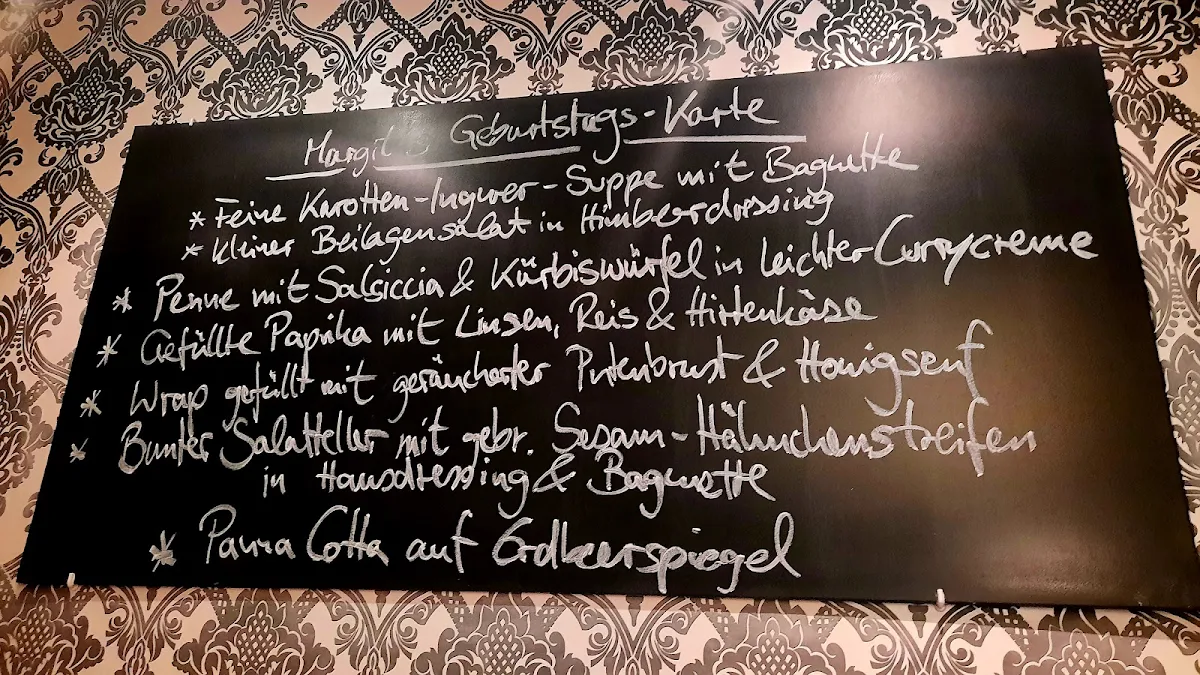 Margit's Geburtstags-Karte
* Feine Karotten-Ingwer-Suppe mit Baguette
* Kleiner Beilagensalat in Himbeerdressing
* Penne mit Salsiccia & Kürbiswürfel in leichter Currycreme
* Gefüllte Paprika mit Linsen, Reis & Hirtenkäse
* Wrap gefüllt mit geräucherter Putenbrust & Honigsenf
* Bunter Salatteller mit gebr. Sesam-Hähnchenstreifen
in Hausdressing & Baguette
* Panna Cotta auf Erdbeerspiegel